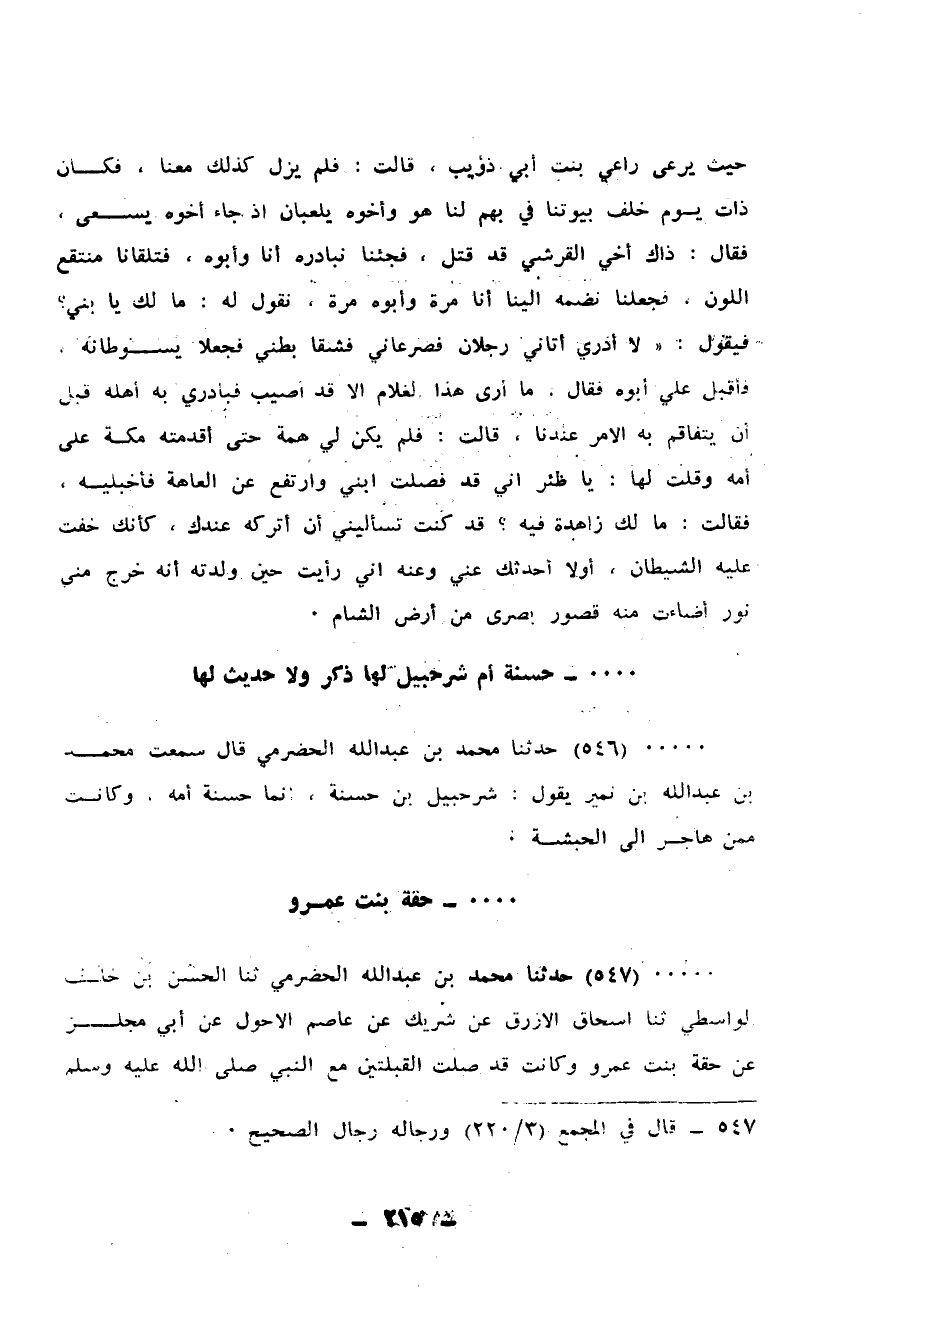 حيث يرعى راعي بنت أبي ذؤيب ، قالت : فلم يزل كذلك معنا ، فكـــان
ذات يـوم خلف بيوتنا في بهم لنا هو وأخوه يلعبان اذ جاء أخوه يســـعى ،
فقال : ذاك أخي القرشي قد قتل ، فجئنا نبادره أنا وأبوه ، فتلقانا منتقع
اللون ، فجعلنا نضمه الينا أنا مرة وأبوه مرة ، نقول له : ما لك يا بني؟
فيقول : « لا أدري أتاني رجلان فصرعاني فشقا بطني فجعلا يســـوطانه ،
فأقبل علي أبوه فقال . ما أرى هذا لغلام الا قد أصيب فبادري به أهله قبل
أن يتفاقم به الامر عندنا ، قالت : فلم يكن لي همة حتى أقدمته مكة على
أمه وقلت لها : يا ظئر اني قد فصلت ابني وارتفع عن العاهة فأخبليـه ،
فقالت : ما لك زاهدة فيه ؟ قد كنت تسأليني أن أتركه عندك ، كأنك خفت
عليه الشيطان ، أولا أحدثك عني وعنه اني رأيت حين ولدته أنه خرج مني
نور أضاءت منه قصور بصرى من أرض الشام ٠
٠٠٠٠ ـ حسنة أم شرحبيل لها ذكر ولا حديث لها
٠٠٠٠٠ (٥٤٦) حدثنا محمد بن عبدالله الحضرمي قال سمعت محمـــد
بن عبدالله بن نمير يقول : شرحبيل بن حسنة ، انما حسنة أمه . وكانـت
ممن هاجـر الى الحبشـة ٠
٠٠٠٠ ـ حقة بنت عمـرو
٠٠٠٠٠ (٥٤٧) حدثنا محمد بن عبدالله الحضرمي ثنا الحسن بن خلف
لواسطي ثنا اسحاق الازرق عن شريك عن عاصم الاحول عن أبي مجلـــز
عن حقة بنت عمرو وكانت قد صلت القبلتين مع النبي صلى الله عليه وسلم
٥٤٧ ـ قال في المجمع (٢٢٠/٣) ورجاله رجال الصحيح ٠
ـ ٢١٥ ـ